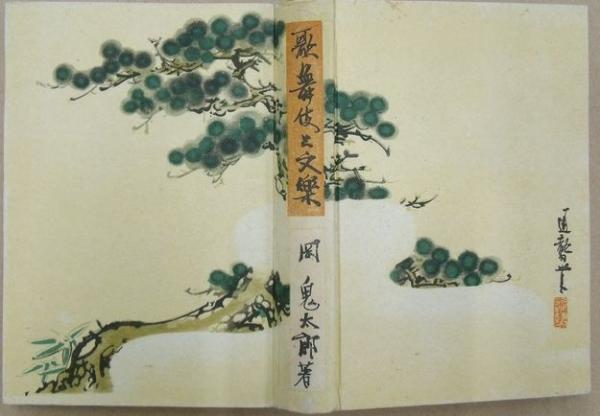 歌舞伎と文樂
岡 鬼太郎著